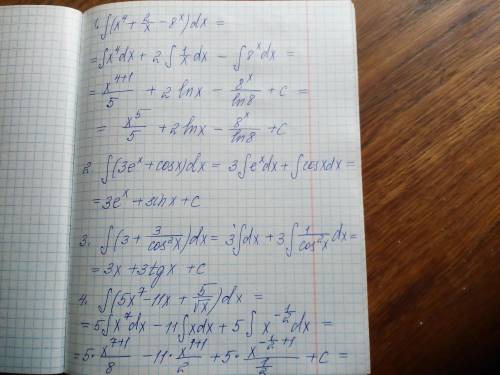 1. ∫(x⁴ + 2/x - 8ˣ)dx =
= ∫x⁴dx + 2∫1/x dx - ∫8ˣdx =
= x⁴⁺¹/5 + 2lnx - 8ˣ/ln8 + C =
= x⁵/5 + 2lnx - 8ˣ/ln8 + C
2. ∫(3eˣ + cosx)dx = 3∫eˣdx + ∫cosxdx =
= 3eˣ + sinx + C
3. ∫(3 + 3/cos²x)dx = 3∫dx + 3∫1/cos²x dx =
= 3x + 3tgx + C
4. ∫(5x⁷ - 11x + 5/√x)dx =
= 5∫x⁷dx - 11∫xdx + 5∫x^(-1/2)dx =
= 5·x⁷⁺¹/8 - 11·x¹⁺¹/2 + 5·x^(-1/2+1)/(1/2) + C =